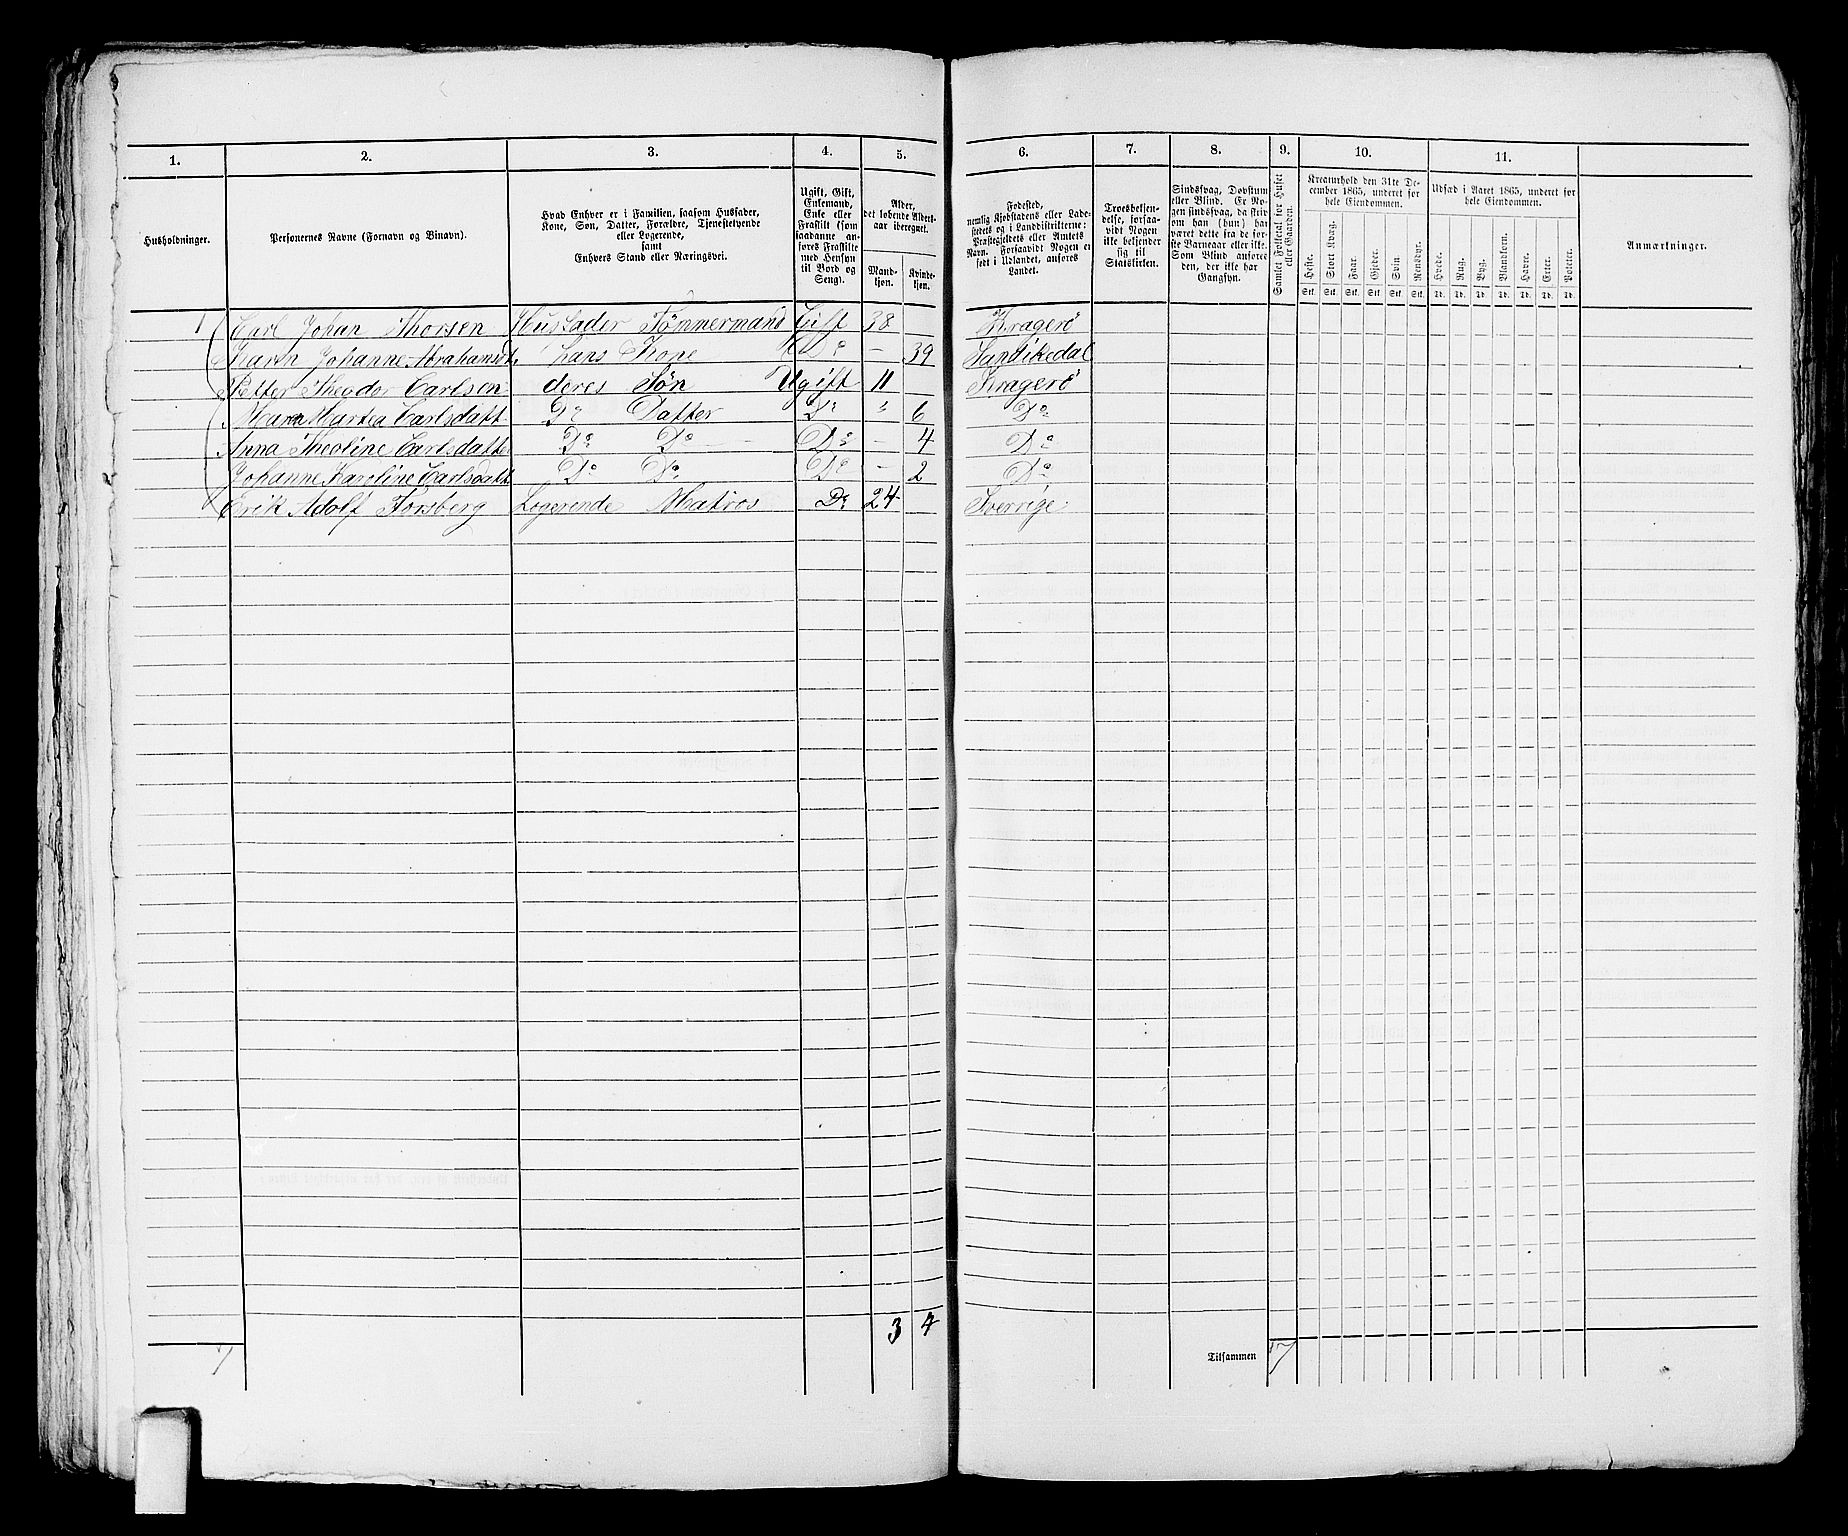 1. 2. 3. 4. 5. 6. 7. 8. 9. 10. 11.
Husholdninger.
Personernes Navne (Fornavn og Binavn).
Hvad Enhver er i Familien, saasom Husfader,
Kone, Søn, Datter, Forældre, Tjenestetyende
eller Logerende,
samt
Enhvers Stand eller Næringsvei.
Ugift, Gift,
Enkemand,
Enke eller
Fraskilt (som
saadanne an-
føres Fraskilte
med Hensyn
til Bord og
Seng).
Alder,
det løbende Alders-
aar iberegnet.
Mand-
kjøn.
Kvinde-
kjøn.
Fødested,
nemlig Kjøbstadens eller Lade-
stedets og i Landdistrikterne:
Præstegjeldets eller Amtets
Navn. Forsaavidt Nogen er
født i Udlandet, anføres
Landet.
Troesbekjen-
delse, forsaa-
vidt Nogen
ikke bekjender
sig til
Statskirken.
Sindssvag, Døvstum
eller Blind. Er No-
gen sindssvag, da skri-
ves om han (hun) har
været dette fra de før-
ste Barneaar eller ikke.
Som Blind anføres
den, der ikke har
Gangsyn.
Samlet Folketal for Huset
eller Gaarden.
Kreaturhold den 31te De-
cember 1865, underet for
hele Eiendommen.
Heste. Stort Kvæg. Faar. Gjeder. Svin. Rensdyr.
Stk. Stk. Stk. Stk. Stk. Stk.
Udsæd i Aaret 1865, underet for
hele Eiendommen.
Hvede. Rug. Byg. Blandkorn. Havre. Erter. Poteter.
Td. Td. Td. Td. Td. Td. Td.
Anmærkninger.
1 Carl Johan Thorsen Husfader Tømmermand Gift 38 Kragerø
Karen Johanne Abrahamsdt. hans Kone Do - 39 Sandøkedal
Petter Theodor Carlsen deres Søn Ugift 11 Kragerø
Maren Martea Carlsdatt. Do Datter Do " 6 Do
Anna Theoline Carlsdatter Do Do Do - 4 Do
Johanne Karoline Carlsdatt. Do Do Do - 2 Do
Erik Adolf Forsberg Logerende Matros Do 24 Sverrige
3 4
Tilsammen
7